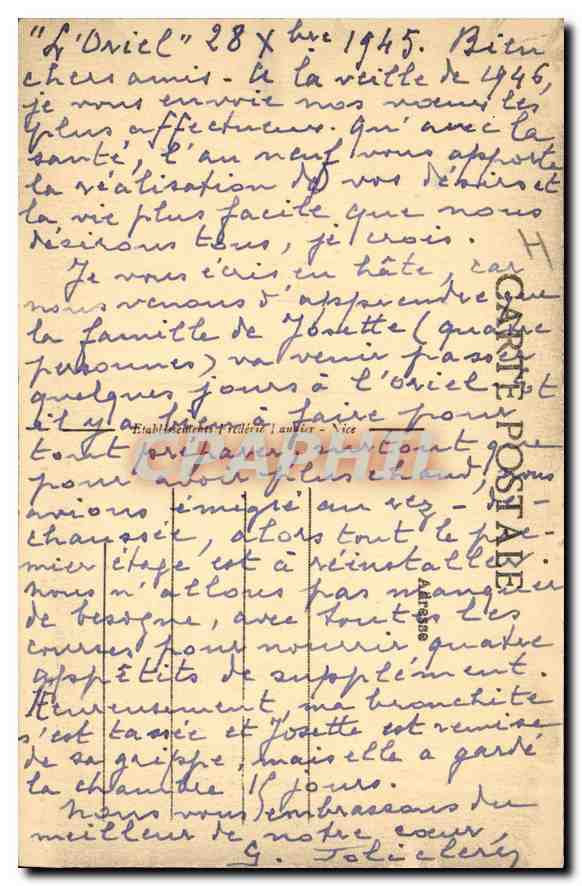 "L'Oriel" 28 Xbre 1945. Bien
chers amis - A la veille de 1946,
je vous envoie nos vœux les
plus affectueux. Qu'avec la
santé, l'an neuf vous apporte
la réalisation de vos désirs et
la vie plus facile que nous
désirons tous, je crois.
Je vous écris en hâte, car
nous venons d'apprendre que
la famille de Josette (quatre
personnes) va venir passer
quelques jours à l'Oriel et
il y a fort à faire pour
tout préparer, surtout que
pour avoir plus chaud, nous
avions émigré au rez-de-
chaussée, alors tout le pre-
mier étage est à réinstaller
nous n'allons pas manquer
de besogne, avec toutes les
courses pour nourrir quatre
appétits de supplément.
Heureusement, ma bronchite
s'est tassée et Josette est remise
de sa grippe, mais elle a gardé
la chambre 15 jours.
Nous vous embrassons du
meilleur de notre cœur,
G.
CARTE POSTALE
Adresse
Etablissements Frédéric Laugier - Nice
CPAPHIL